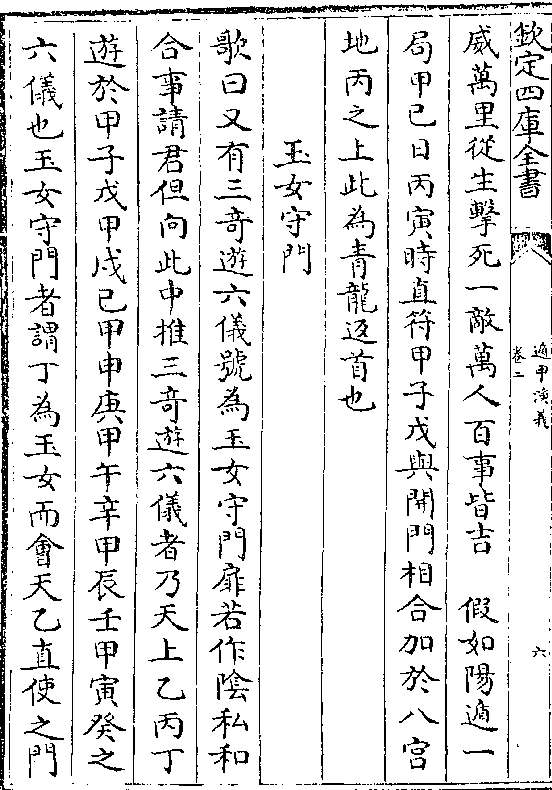 欽定四庫全書
遁甲演義
卷二
六
威萬里從生擊死一敵萬人百事皆吉　假如陽遁一
局甲己日丙寅時直符甲子戊與開門相合加於八宮
地丙之上此為青龍返首也
玉女守門
歌曰又有三竒遊六儀號為玉女守門扉若作陰私和
合事請君但向此中推三竒遊六儀者乃天上乙丙丁
遊於甲子戊甲戌己甲申庚甲午辛甲辰壬甲寅癸之
六儀也玉女守門者謂丁為玉女而會天乙直使之門